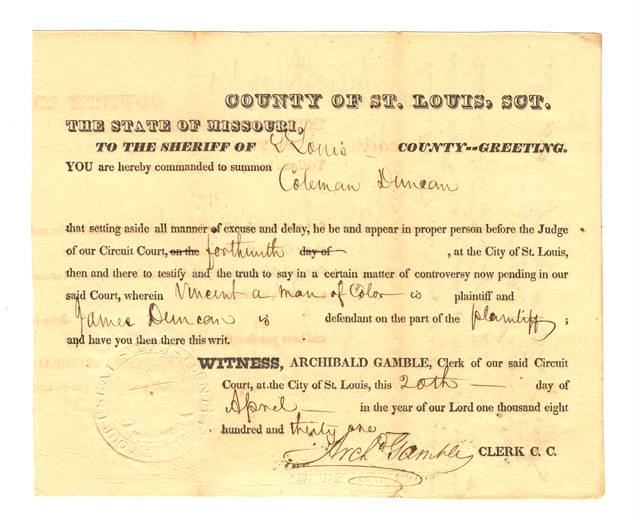 COUNTY OF ST. LOUIS, SCT.
THE STATE OF MISSOURI,
TO THE SHERIFF OF St Louis — COUNTY--GREETING.
YOU are hereby commanded to summon
Coleman Duncan
that setting aside all manner of excuse and delay, he be and appear in proper person before the Judge
of our Circuit Court, on the forthwith day of , at the City of St. Louis,
then and there to testify and the truth to say in a certain matter of controversy now pending in our
said Court, wherein Vincent a man of Color is plaintiff and
James Duncan is defendant on the part of the plaintiff ;
and have you then there this writ.
WITNESS, ARCHIBALD GAMBLE, Clerk of our said Circuit
Court, at the City of St. Louis, this 20th — day of
April — in the year of our Lord one thousand eight
hundred and thirty one
Archd Gamble CLERK C. C.